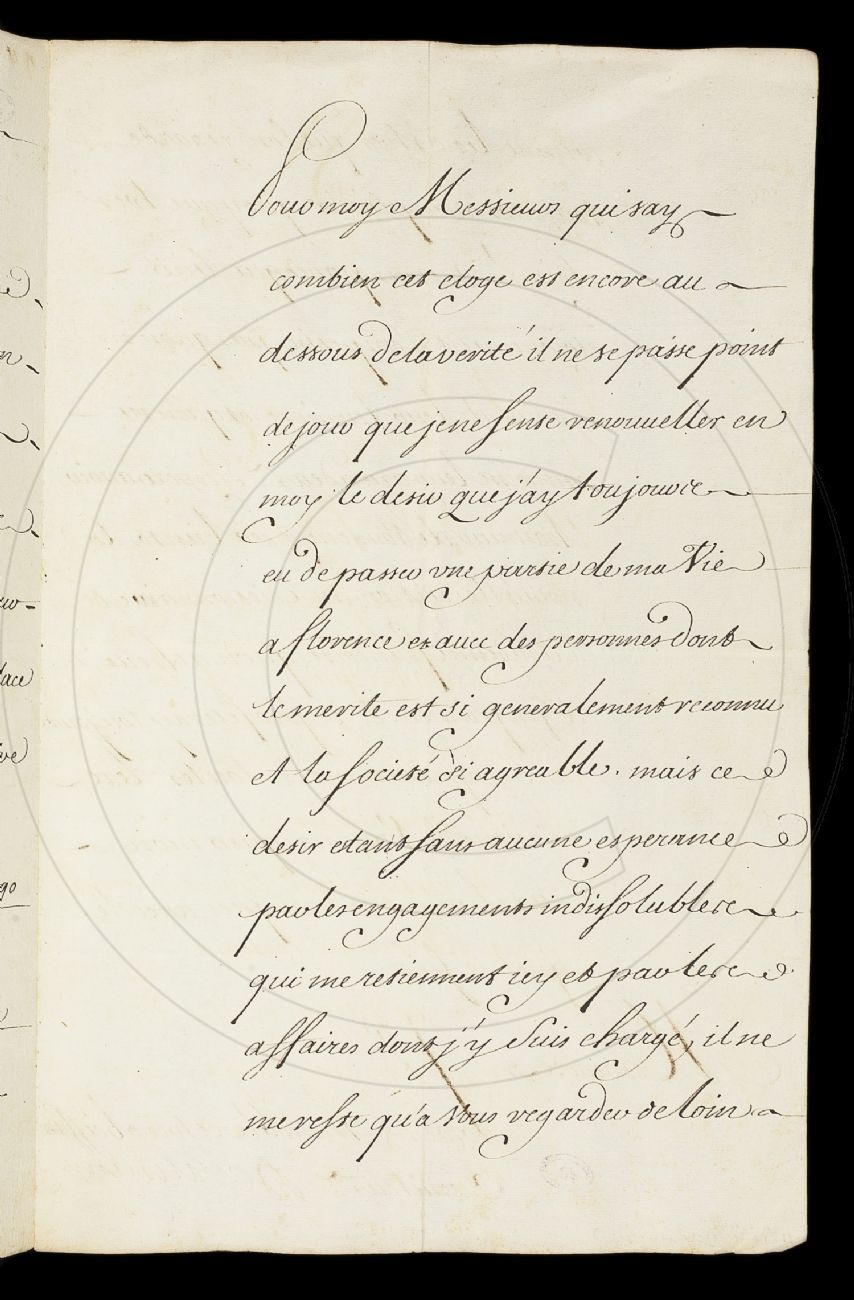 Pour moy Messieurs qui say
combien cet eloge est encore au
dessous de la verité il ne se passe point
de jour que je ne sente renouveller en
moy le desir que j'ay toujours
eu de passer vne partie de ma Vie
a florence et avec des personnes dont
le merite est si generalement reconnu
et la societé si agreable. mais ce
desir etant sans aucune esperance
par les engagements indissolubles
qui me retiennent icy et par les
affaires dont j'y suis chargé, il ne
me reste qu'a vous regarder de loin